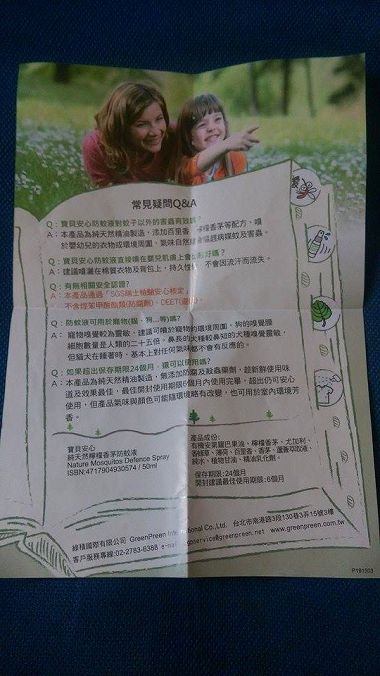 常見疑問Q&A
Q：寶貝安心防蚊液對蚊子以外的害蟲有效嗎?
A：本產品為純天然精油製造，添加百里香、檸檬香茅等配方，噴
於嬰幼兒的衣物或環境周圍，氣味自然
Q：寶貝安心防蚊液直接噴在嬰兒肌膚上會
A：建議噴灑在棉質衣物及背包上，持久性 不會因流汗而流失。
Q：有無相關安全認證?
A：本產品通過「SGS瑞士檢驗安心檢定」
不含
Q：防蚊液可用於寵物(貓、狗...等)嗎?
A：寵物嗅覺較為靈敏，建議可噴於寵物的環境周圍，狗的嗅覺腺
細胞數量是人類的二十五倍，鼻長的犬種較鼻短的犬種嗅覺靈敏，
但貓犬在睡著時，基本上對任何氣味都不會有反應的。
Q：如果超出保存期限24個月，還可以使用嗎?
A：本產品為純天然精油製造，無添加防腐及殺蟲藥劑，超新鮮使用味
道及效果最佳，最佳開封使用期限6個月內使用完畢，超出仍可安心
使用，但產品氣味與顏色可能隨環境略有改變，也可用於室內環境芳
香。
寶貝安心
純天然檸檬香茅防蚊液
Nature Mosquitos Defence Spray
ISBN:4717904930574 / 50ml
產品成份:
有機安第羅巴果油、檸檬香茅、尤加利、
香蜂草、薄荷、百里香、香茅、蘆薈萃取液、
純水、植物甘油、精油乳化劑。
保存期限:24個月
開封建議最佳使用期限:6個月
綠積國際有限公司 GreenPreen International Co.,Ltd. 台北市南港路3段130巷3弄15號3樓
客戶服務專線:02-2783-6388 e-mail: gpservice@greenpreen.net www.greenpreen.com.tw
P191303